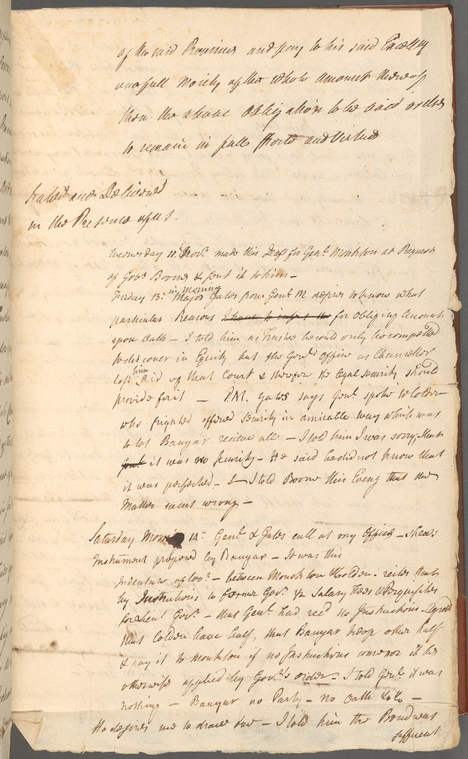 of the said Province and pay to his said Excellcy
one full Moiety of the whole amount thereof
then the above Obligation to be void or else
to remain in full Force and Virtue
Sealed and Delivered
in the Presence of us.
Wednesday 11. Novr. made this Draft for Genl. Monkton at Request
of Govr. Boone & sent it to him –
Friday 13: in Morning Major Gates from Genl. M desires to know what
particular Reasons for obliging
upon Oath – I told him as Trustee he could only be compelled
to discover in Equity but the Govrs. office as Chancellor
left him Aid of that Court & therefore the legal security should
provide for it – M. Gates says Govr. spoke to Colden
who offered security in amicable way which was
to let Banyar receive all – I told him I was sorry that
it was no security – He said he did not know that
it was – I told Boone this Eveng that the
Matter went wrong –
Saturday Morng 14: Genl. & Gates call at my Office – Shew
Instrument proposed by Banyar – It was this
Indenture of – between Monkton & Colden – recites that
by Instructions to former Govr. ½ Salary Fees & Perquisites
for Lieut Govr. – that Genl. had recd no Instructions – agreed
that Colden have half, that Banyar keep other half
& pay it to Monkton if no Instructions come or if be
otherwise applied by Govrs order – I told Genl. it was
nothing – Banyar no Party – no Oath &c &c –
He desires me to draw one – I told him the Bond was
sufficient